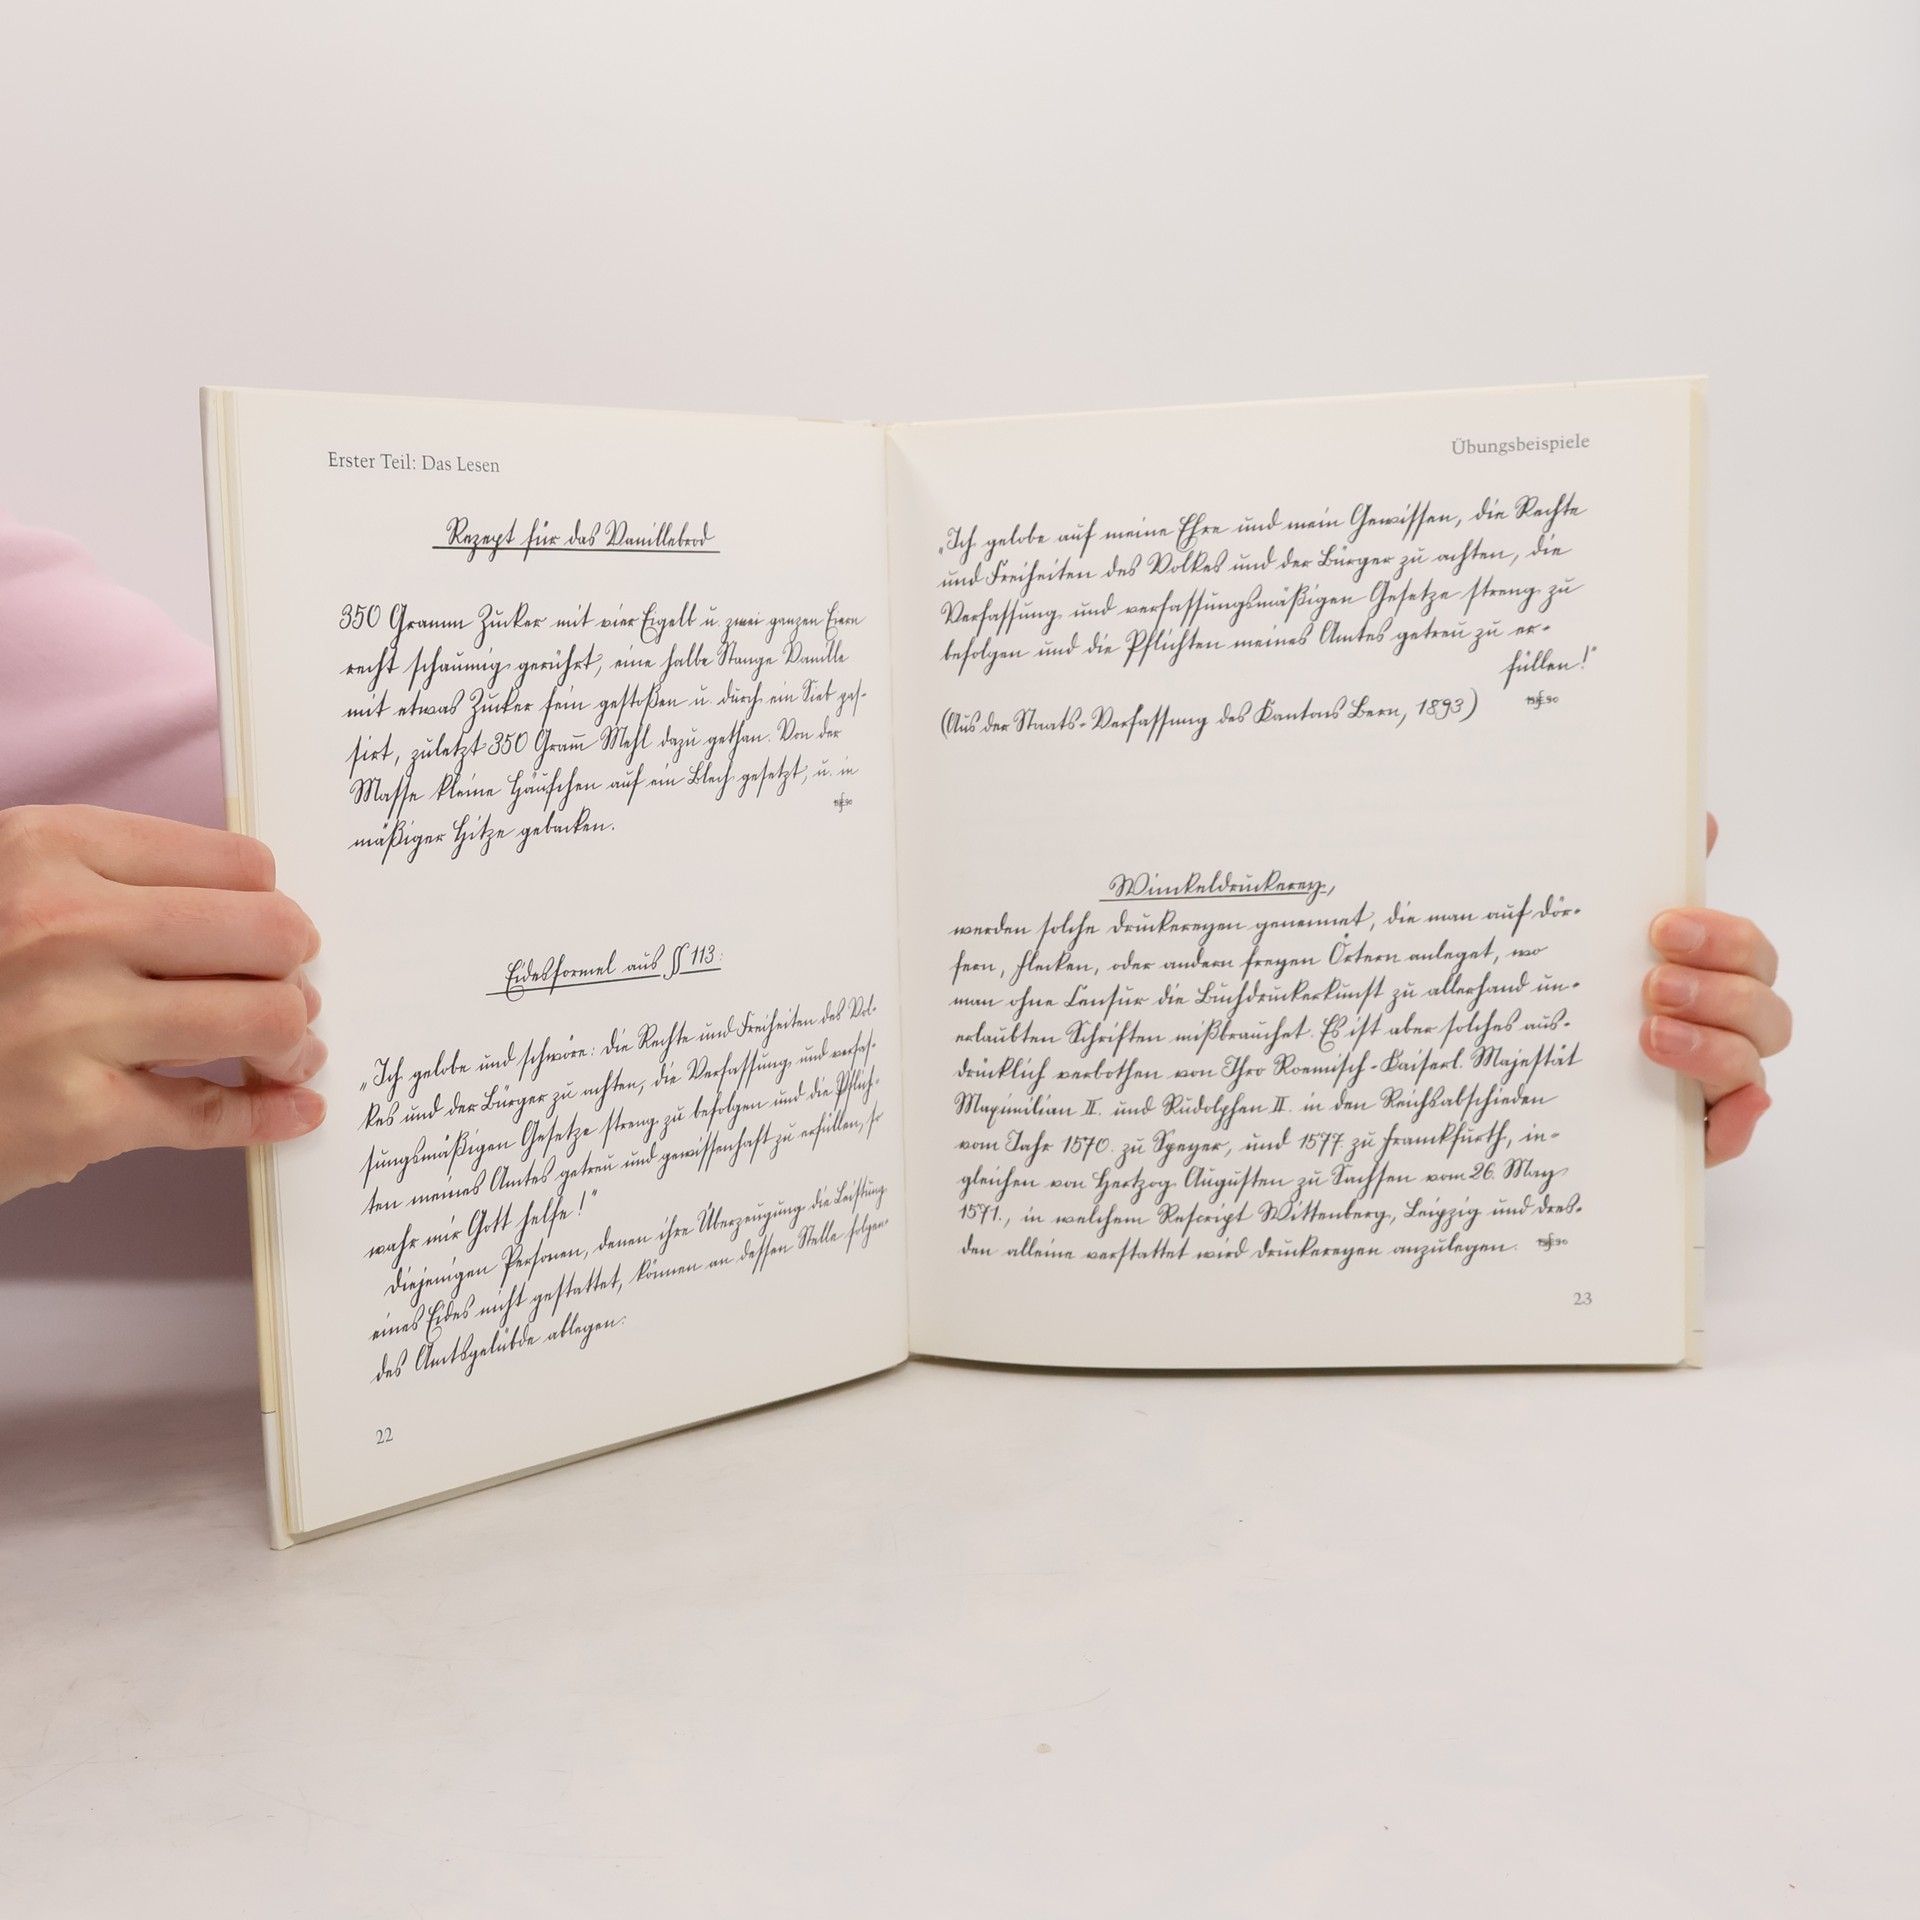 Erster Teil: Das Lesen
Rezept für das Vanillebrod
350 Gramm Zucker mit vier Eigelb u. zwei ganzen Eiern
recht schaumig gerührt, eine halbe Stange Vanille
mit etwas Zucker fein gestoßen u. durch ein Sieb pas-
sirt, zuletzt 350 Gram̅ Mehl dazu gethan. Von der
Masse kleine Häufchen auf ein Blech gesetzt, u. in
mäßiger Hitze gebacken.
Eidesformel aus § 113:
„Ich gelobe und schwöre: die Rechte und Freiheiten des Vol-
kes und der Bürger zu achten, die Verfassung und verfas-
sungsmäßigen Gesetze streng zu befolgen und die Pflich-
ten meines Amtes getreu und gewissenhaft zu erfüllen, so
wahr mir Gott helfe!"
Diejenigen Personen, denen ihre Überzeugung die Leistung
eines Eides nicht gestattet, können an dessen Stelle folgen-
des Amtsgelübde ablegen:
22
Übungsbeispiele
„Ich gelobe auf meine Ehre und mein Gewissen, die Rechte
und Freiheiten des Volkes und der Bürger zu achten, die
Verfassung und verfassungsmäßigen Gesetze streng zu
befolgen und die Pflichten meines Amtes getreu zu er-
füllen!"
(Aus der Staats-Verfassung des Kantons Bern, 1893)
Winckeldruckerey,
werden solche Druckereyen genennet, die man auf Dör-
fern, Flecken, oder andern freyen Örtern anleget, wo
man ohne Censur die Buchdruckerkunst zu allerhand un-
erlaubten Schriften mißbrauchet. Es ist aber solches aus-
drücklich verbothen von Ihro Roemisch-Kaiserl. Majestät
Maximilian II. und Rudolphen II. in den Reichsabschieden
vom Jahr 1570. zu Speyer, und 1577. zu Franckfurth, in-
gleichen von Hertzog Augusten zu Sachsen vom 26. May
1571., in welchem Rescript Wittenberg, Leipzig und Dres-
den alleine verstattet wird Druckereyen anzulegen.
23